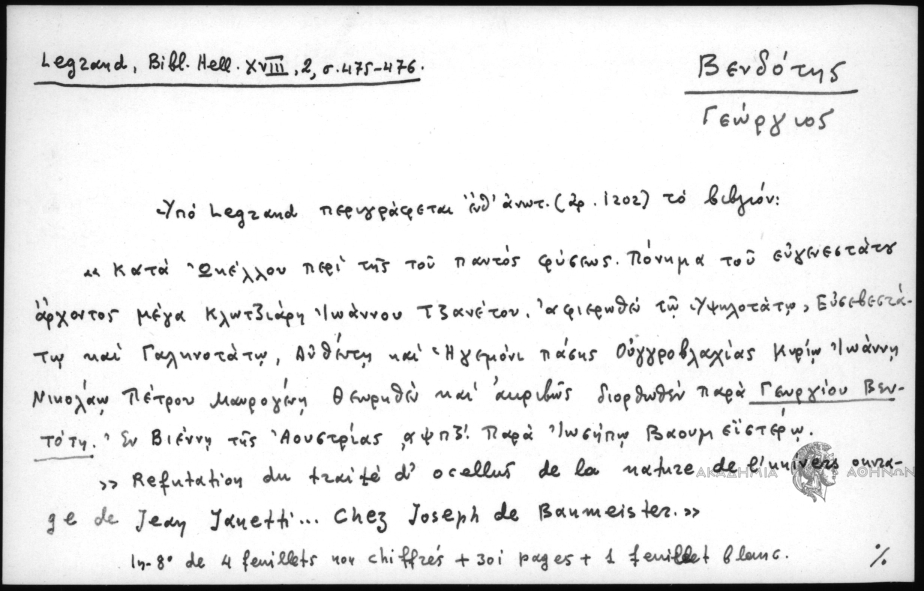 Legrand, Bibl. Hell. XVIII, 2, σ. 475-476.
Βενδότης
Γεώργιος
Ὑπό Legrand περιγράφεται ἐνθ' ἀνωτ. (ἀρ. 1202) τό βιβλίον:
«Κατά Ὠκέλλου περί τῆς τοῦ παντός φύσεως. Πόνημα τοῦ εὐγενεστάτου
ἄρχοντος μέγα Κλωτζιάρη Ἰωάννου Τζανέτου. Ἀφιερωθέν τῷ Ὑψηλοτάτῳ, Εὐσεβεστά-
τῳ καί Γαληνοτάτῳ, Αὐθέντῃ καί Ἡγεμόνι πάσης Οὐγγροβλαχίας Κυρίῳ Ἰωάννῃ
Νικολάῳ Πέτρου Μαυρογένῃ θεωρηθέν καί ἀκριβῶς διορθωθέν παρά Γεωργίου Βεν-
τότη. Ἐν Βιέννῃ τῆς Ἀουστρίας ͵αψπζʹ. Παρά Ἰωσήπῳ Βαουμεϊστέρῳ.
» Refutation du traité d'ocellus de la nature de l'univers ouvra-
ge de Jean Janetti... Chez Joseph de Baumeister.»
In-8° de 4 feuillets non chiffrés + 301 pages + 1 feuillet blanc.
%
ΑΚΑΔΗΜΙΑ ΑΘΗΝΩΝ